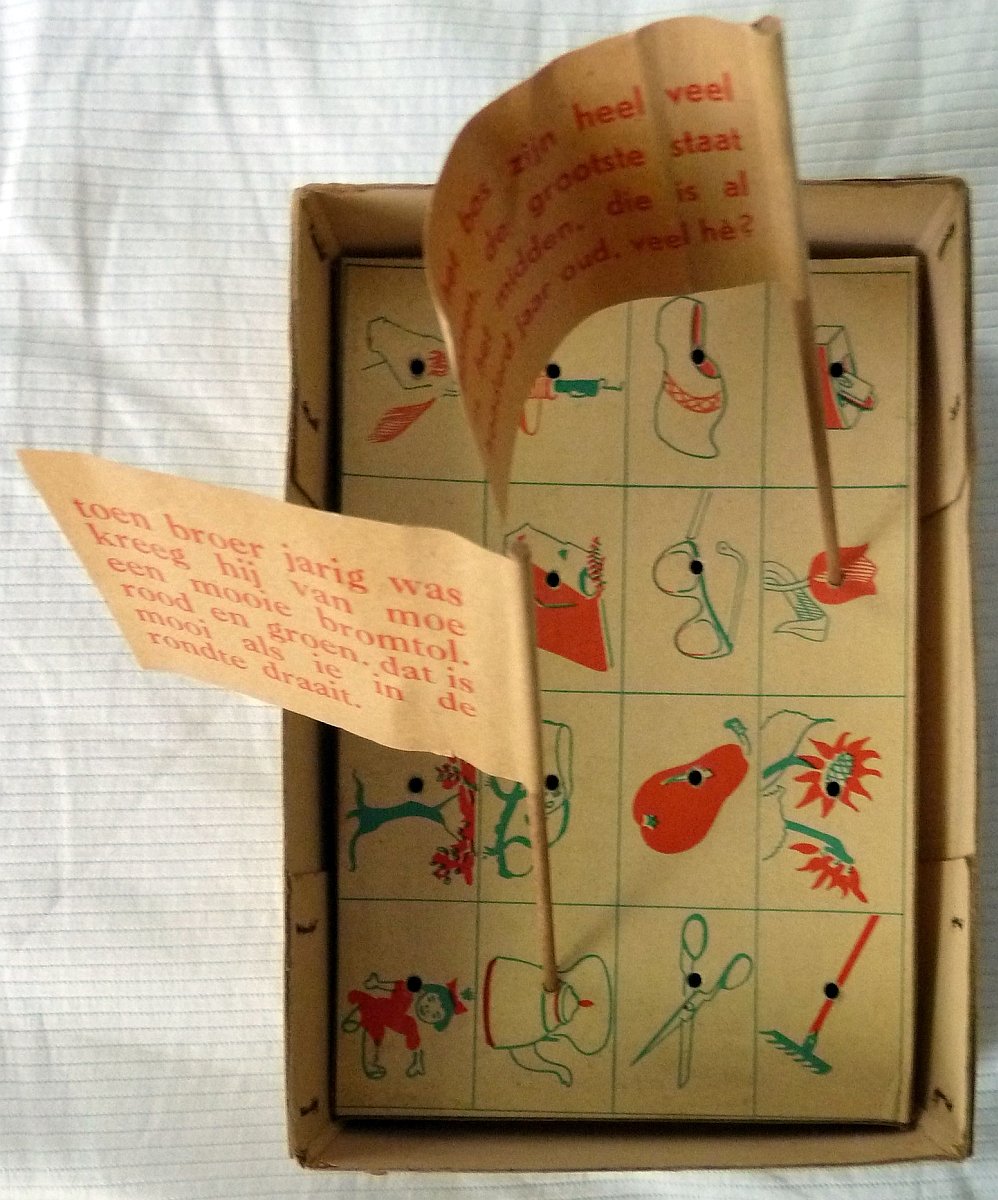 het bos zijn heel veel
de grootste staat
het midden. die is al
jaar oud. veel hè?
toen broer jarig was
kreeg hij van moe
een mooie bromtol.
rood en groen. dat is
mooi als ie in de
rondte draait.